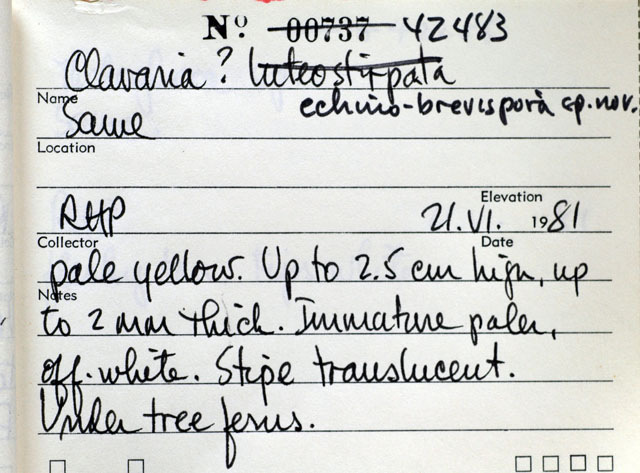 Nº 00737 42483
Clavaria ? luteostirpata
Name echino-brevispora sp. nov.
Same
Location
Elevation
RHP 21.VI. 1981
Collector Date
pale yellow. Up to 2.5 cm high, up
Notes
to 2 mm thick. Immature paler,
off-white. Stipe translucent.
Under tree ferns.